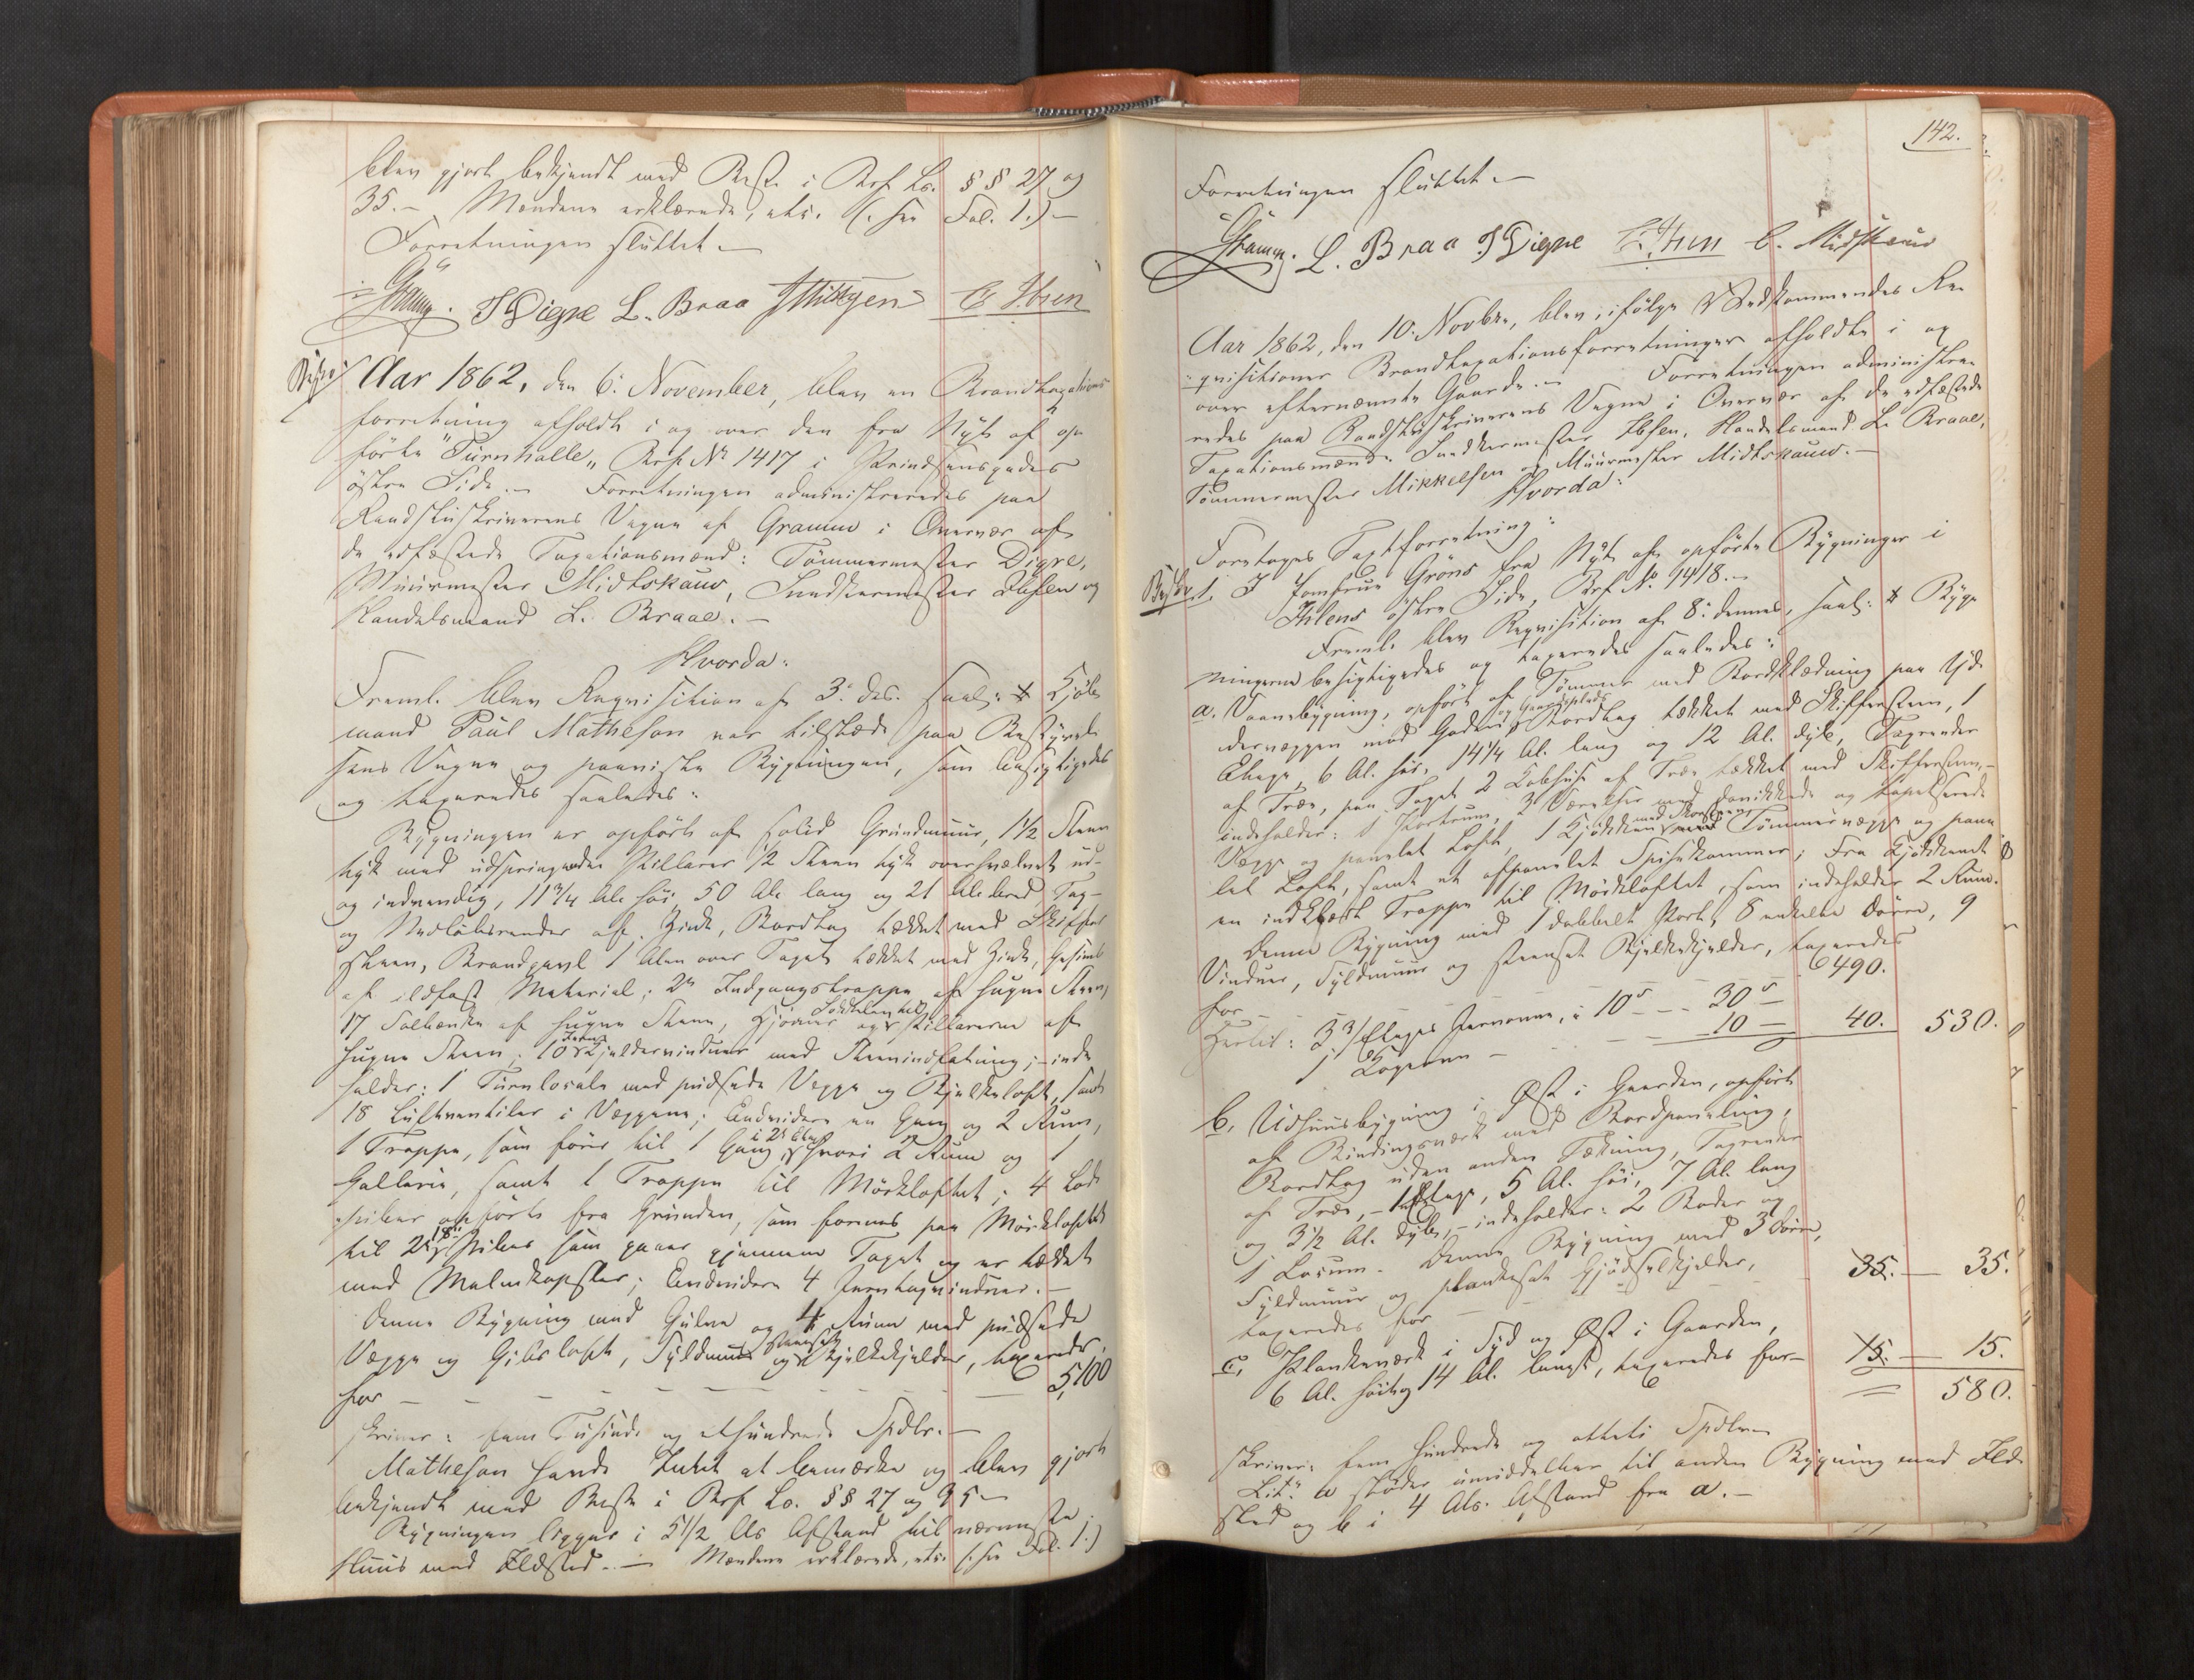 blev gjort bekjendt med Best. i Brf. Lo. §§ 27 og
35. – Mændene erklærede, etc. (: see Fol. 1.) –
Forretningen sluttet –
Gramm. J Digre L. Braa E Ibsen
Aar 1862, den 6. November, blev en Brandtaxations
forretning afholdt i og over den fra Nyt af op
førte "Turnhalle" Brf. No 1417 i Prindsensgades
østre Side. – Forretningen administreredes paa
Raadstuskriverens Vegne af Gramm i Overvær af
de edfæstede Taxationsmænd: Tømmermester Digre,
Muurmester Midtskauw, Snedkermester Ibsen og
Handelsmand L. Braae. –
Hvorda:
Freml. blev Requisition af 3. ds. saal: # Kjøb
mand Paul Matheson var tilstede paa Bestyrel
sens Vegne og paaviste Bygningen, som besigtigedes
og taxeredes saaledes:
Bygningen er opført af solid Grundmuur, 1½ Steen
tyk med udspringende Pillarer ½ Steen tyk overhvælvet ud-
og indvendig, 11¾ Al. høi, 50 Al. lang og 21 Al. bred, Tag-
og Nedløbsrender af Zink, Bordtag tækket med Skiffer
steen, Brandgavl 1 Alen over Taget tækket med Zink, Gesims
af ildfast Material; 2 Indgangstrappe af hugne Steen,
17 Solbænke af hugne Steen, Hjørner og Sokkelen til Pillarerne af
hugne Steen; 10 Kjeldervinduer med Steenindfatning; – inde
holder: 1 Turnlocale med pudsede Vægge og Bjelkeloft, samt
18 Luftventiler i Væggene; Endvidere en Gang og 2 Rum,
1 Trappe, som fører til 1 Gang i 2 Etage hvori 2 Rum og 1
Gallerie, samt 1 Trappe til Mørkloftet; 4 Lod
piber opført fra Grunden, som formes paa Mørkloftet
til 2 18" Piber som gaaer gjennem Taget og er tækket
med Malmkapsler; Endvidere 4 Jerntagvinduer. –
Denne Bygning med Gulve og 4 Rum med pudsede
Vægge og Gibsloft, Fyldmuur og steensat Bjelkekjelder, taxeredes
for – – – – – – – – 5,100
skriver: fem Tusinde og ethundrede Spdlr. –
Matheson havde Intet at bemærke og blev gjort
bekjendt med Best. i Brf. Lo. §§ 27 og 35 –
Bygningen ligger i 5½ Als Afstand til nærmeste
Huus med Ildsted. – Mændene erklærede, etc. (: see Fol. 1.)
142.
Forretningen sluttet. –
Gramm. L. Braa J Digre E. Ibsen C. Midtskauw
Aar 1862, den 10. Novbr., blev, ifølge Vedkommendes Re
quisitioner Brandtaxationsforretninger afholdte i og
over efternævnte Gaarde. – Forretningen administre
redes paa Raadstuskriverens Vegne i Overvær af de edfæstede
Taxationsmænd: Snedkermester Ibsen, Handelsmand L. Braae,
Tømmermester Mikkelsen og Muurmester Midtskauw. –
Hvorda:
Foretoges Taxtforretning:
1. I Jomfrue Grøns fra Nyt af opførte Bygninger i
Ihlens østre Side, Brf. No. 1418. –
Freml. blev Requisition af 8. dennes, saal: # Byg
ningerne besigtigedes og taxeredes saaledes:
a. Vaanebygning, opført af Tømmer med Bordklædning paa Yd
dervæggen mod Gaden og Gaardsplads, Bordtag tækket med Skiffersteen, 1
Etage, 6 Al. høi, 14¼ Al. lang og 12 Al. dyb, Tagrender
af Træ, paa Taget 2 Kobhuse af Træ tækket med Skiffersteen, –
indeholder: 1 Portrum, 3 Værelser med panikkede og tapetserede
Vægge og panelet Loft, 1 Kjøkken med Skorsteen med Tømmervægge og pane
let Loft, samt et afpanelet Spisekammer; Fra Kjøkkenet
en indklædt Trappe til Mørkloftet, som indeholder 2 Rum.
Denne Bygning med 1 dobbelt Port, 8 enkelte Dørre, 9
Vinduer, Fyldmuur og steensat Bjelkekjelder, taxeredes
for – 490.
Hertil: 3 3/Etages Jernovne, à 10 – – – 30 –
1 Kogeovn – – – – 10 – 40. 530.
b. Udhuusbygning i Øst i Gaarden, opført
af Bindingsværk med Bordpaneling,
Bordtag uden anden Tækning, Tagrender
af Træ, – 1 Etage, 5 Al. høi, 7 Al. lang
og 3½ Al. dyb, – indeholder: 2 Boder og
1 Locum. Denne Bygning med 3 Dørre,
Fyldmuur og plankesat Gjødselkjelder,
taxeredes for – 35. – 35.
c. Plankeværk i Syd og Øst i Gaarden,
6 Al. høit og 14 Al. langt, taxeredes for – 15. – 15.
580.
skriver: fem Hundrede og otteti Spdlr. –
Litr. a støder umiddelbar til anden Bygning med Ild
sted og b i 4 Als. Afstand fra a. –